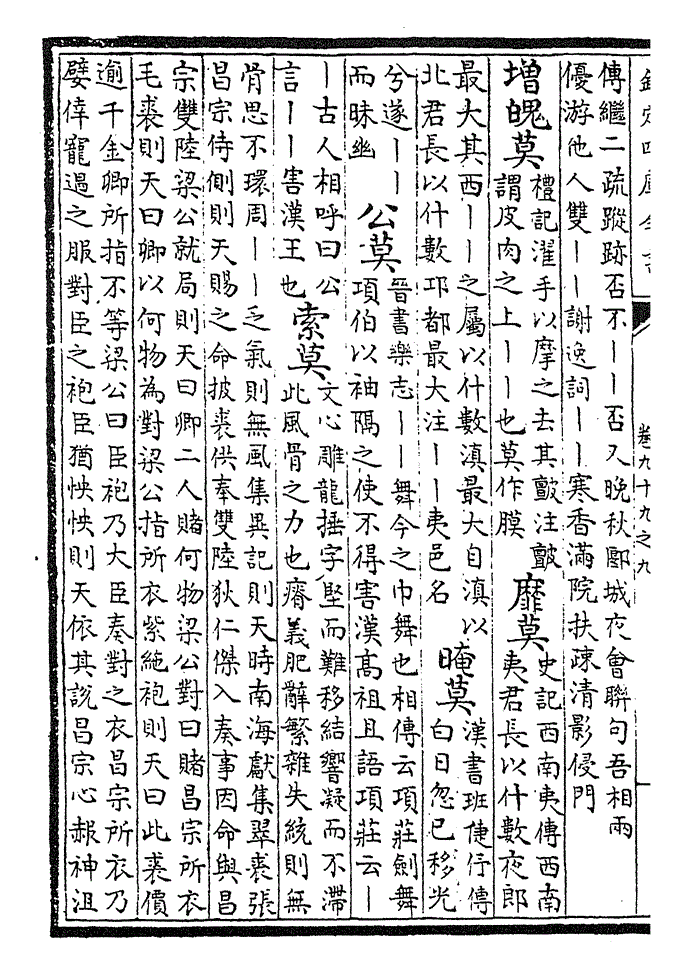 欽定四庫全書
卷九十九之九
傳繼二疏蹤跡否不丨丨否又晚秋郾城夜會聯句吾相兩
優游他人雙丨丨謝逸詞丨丨寒香滿院扶疎清影侵門
增魄莫
禮記濯手以摩之去其皽注皽
謂皮肉之上丨丨也莫作膜
靡莫
史記西南夷傳西南
夷君長以什數夜郎
最大其西丨丨之屬以什數滇最大自滇以
北君長以什數邛都最大注丨丨夷邑名
晻莫
漢書班倢伃傳
白日忽已移光
兮遂丨丨
而昧幽
公莫
晉書樂志丨丨舞今之巾舞也相傳云項莊劍舞
項伯以袖隔之使不得害漢高祖且語項莊云丨
丨古人相呼曰公
言丨丨害漢王也
索莫
文心雕龍捶字堅而難移結響凝而不滯
此風骨之力也瘠義肥辭繁雜失統則無
骨思不環周丨丨乏氣則無風集異記則天時南海獻集翠裘張
昌宗侍側則天賜之命披裘供奉雙陸狄仁傑入奏事因命與昌
宗雙陸梁公就局則天曰卿二人賭何物梁公對曰賭昌宗所衣
毛裘則天曰卿以何物為對梁公指所衣紫絁袍則天曰此裘價
逾千金卿所指不等梁公曰臣袍乃大臣奏對之衣昌宗所衣乃
嬖倖寵遇之服對臣之袍臣猶怏怏則天依其說昌宗心赧神沮